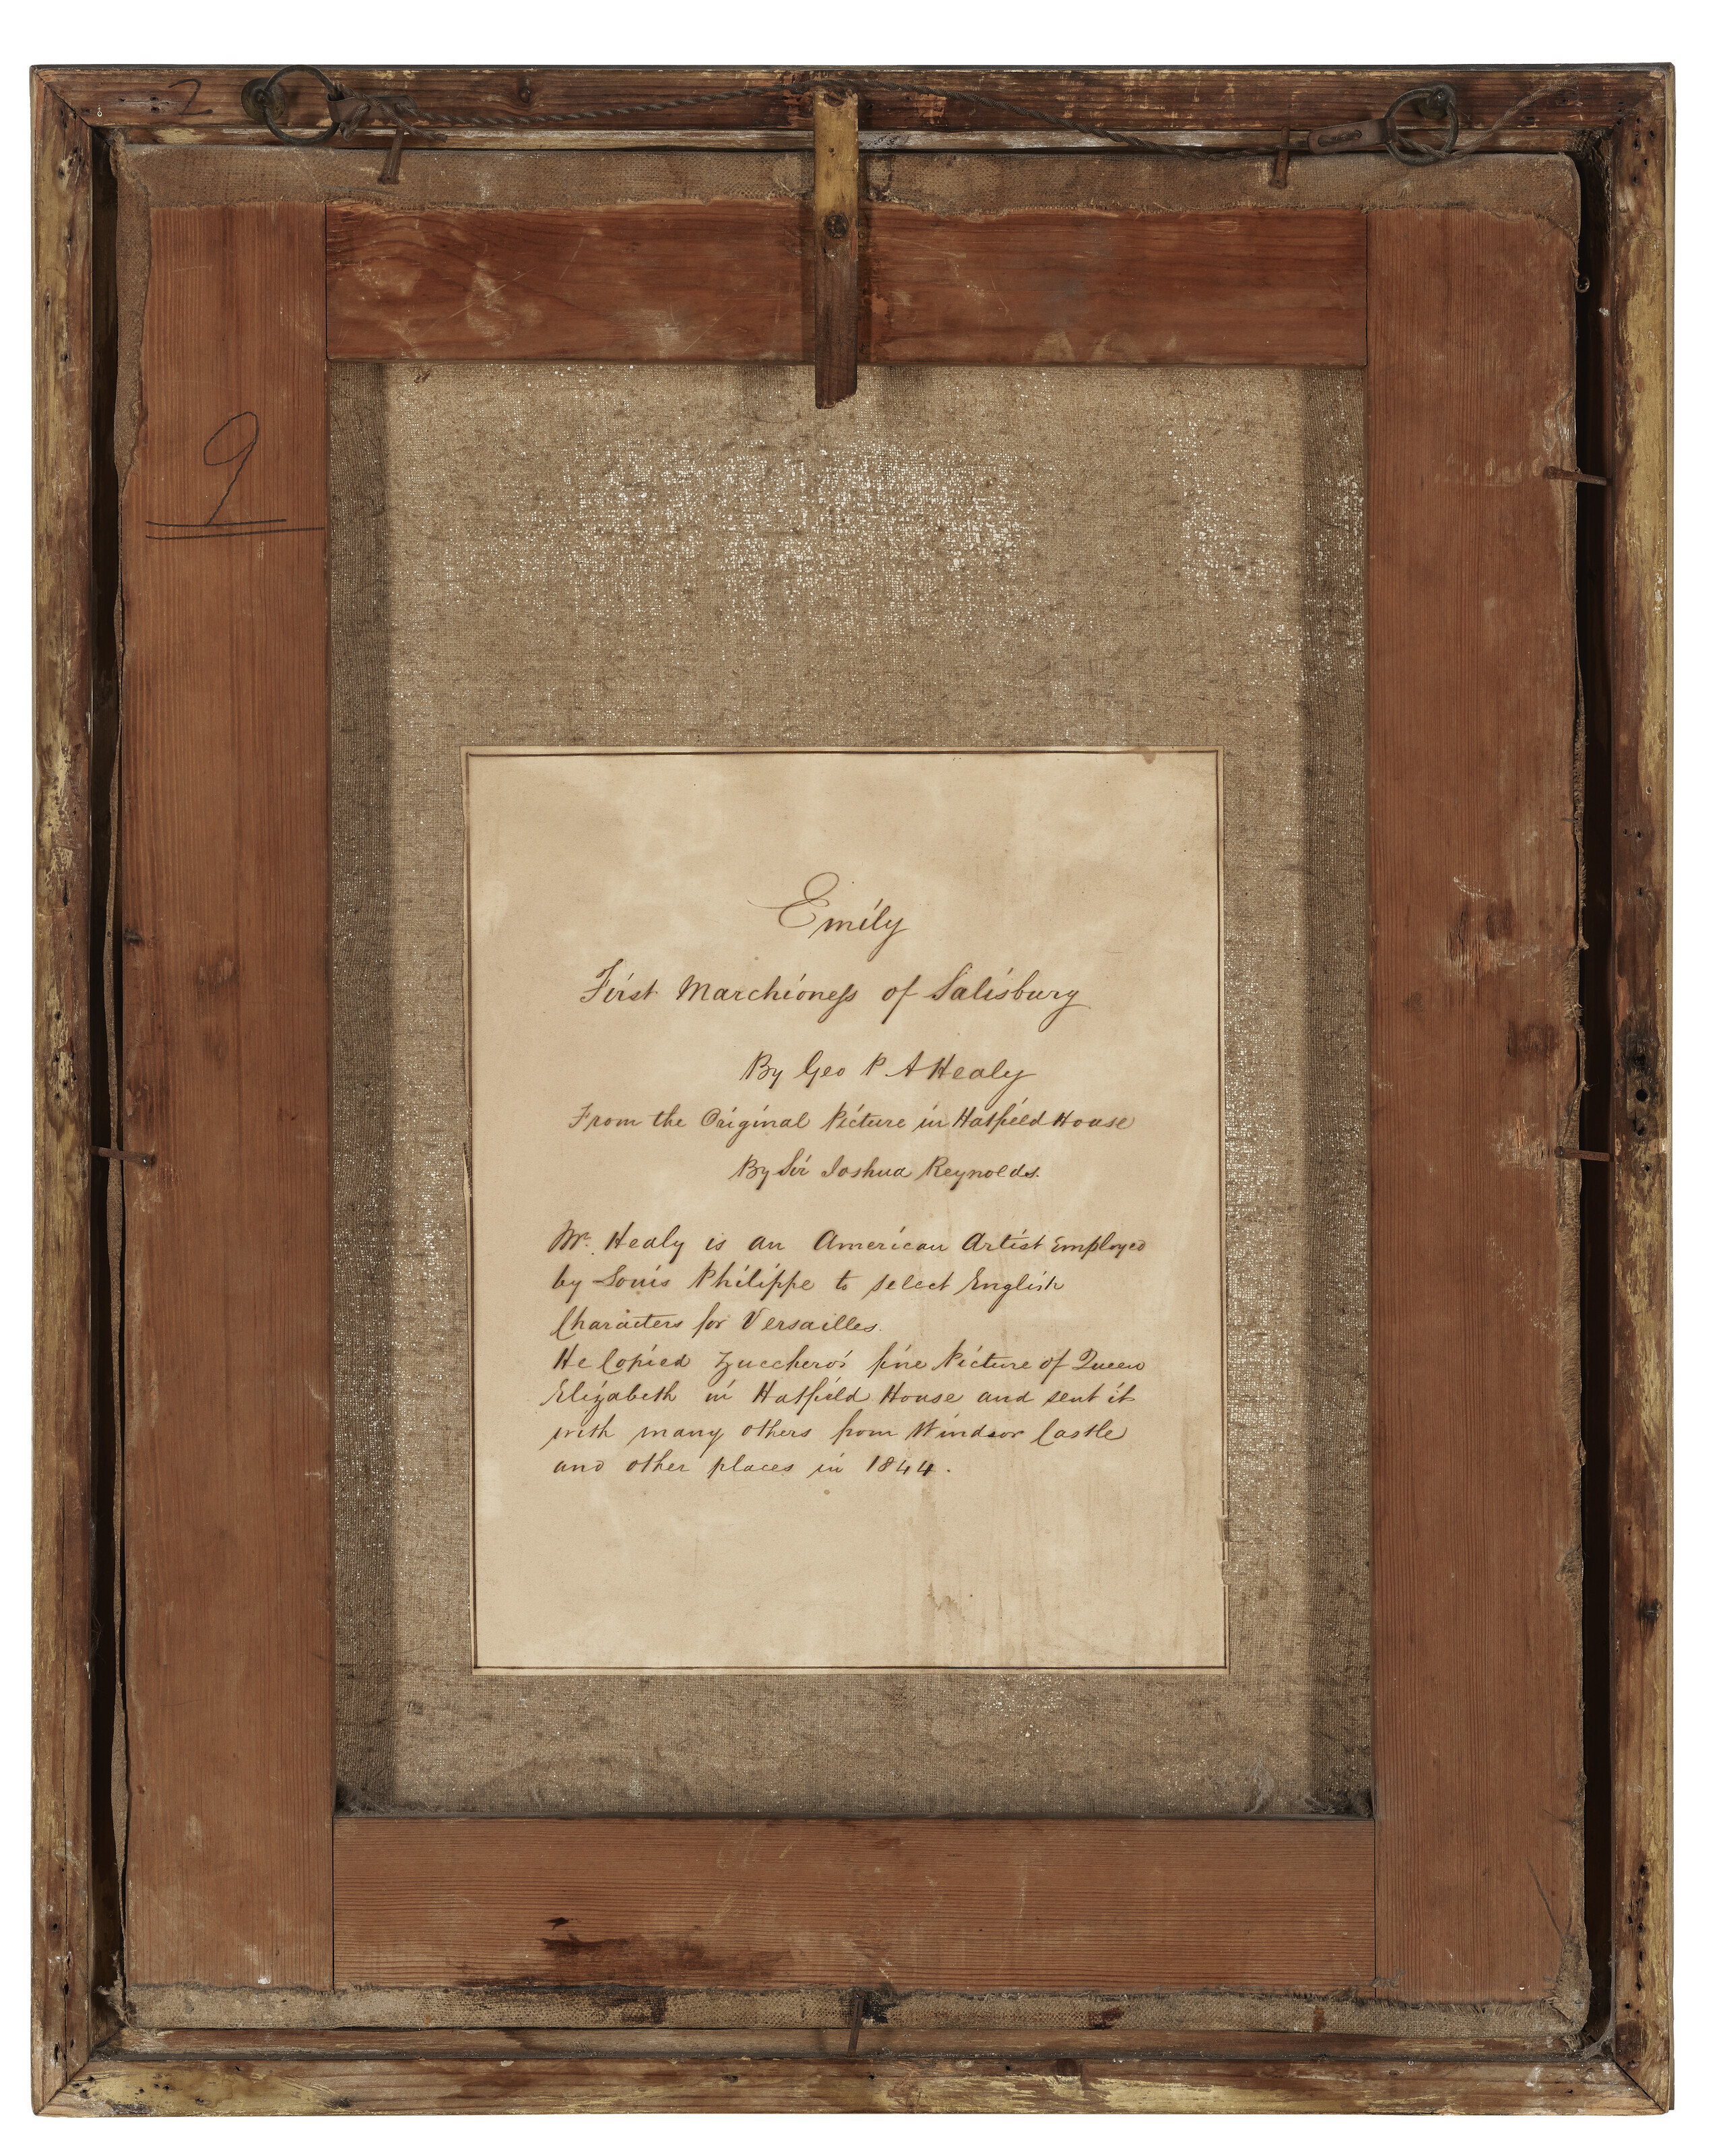 2
9
Emily
First Marchioneſs of Salisbury
By Geo P. A Healy
From the Original Picture in Hatfield House
By Sir Joshua Reynolds.
Mr. Healy is an American Artist Employed
by Louis Philippe to select English
Characters for Versailles.
He Copied Zucchero's fine Picture of Queen
Elizabeth in Hatfield House and sent it
with many others from Windsor Castle
and other places in 1844.